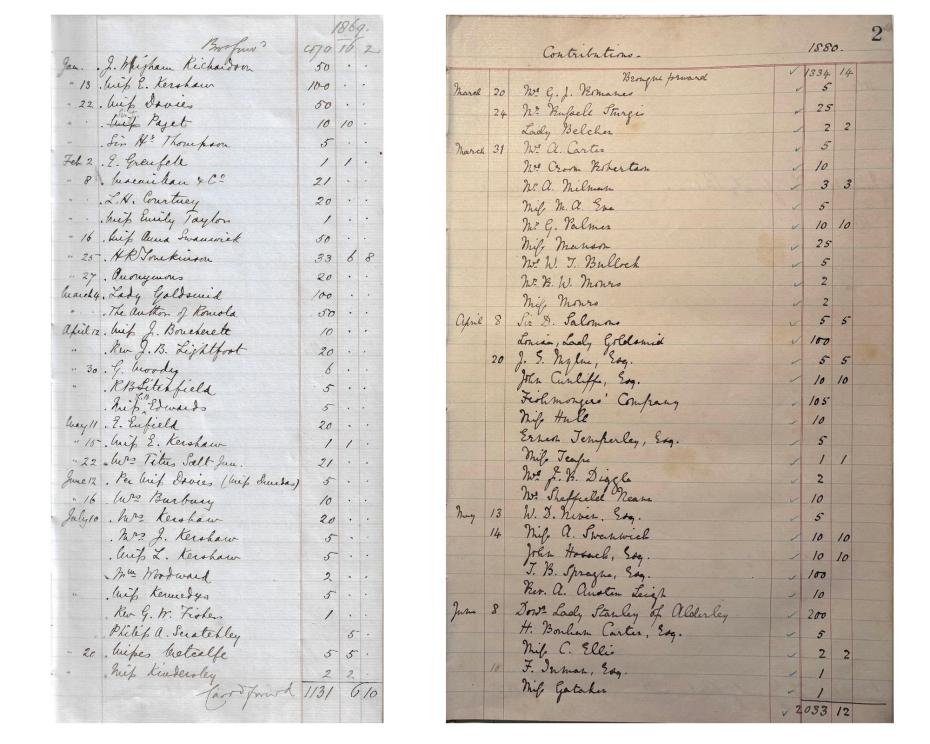 1869.
Bro forwd 670 16 2
Jan. J. Wigham Richardson 50 . .
" 13 Miss E. Kershaw 100 . .
" 22 Miss Davies 50 . .
" . Paget 10 10 .
Sir Hy Thompson 5 . .
Feb 2 E. Grenfell 1 1 .
" 8 Macmillan & Co 21 . .
L. H. Courtney 20 . .
Miss Emily Taylor 1 . .
" 16 Miss Anna Swanwick 50 . .
" 25 H R Tomkinson 33 6 8
" 27 Anonymous 20 . .
March 4 Lady Goldsmid 100 . .
" The Author of Romola 50 . .
April 12 Miss J. Boucherett 10 . .
Rev J. B. Lightfoot 20 . .
" 30 G. Moody 6 . .
R B Litchfield 5 . .
Miss Edwards 5 . .
May 11 E. Enfield 20 . .
" 15 Miss E. Kershaw 1 1 .
" 22 Mrs Titus Salt Jun. 21 . .
June 12 Per Miss Davies (Miss Dundas) 5 . .
" 16 Mrs Burbury 10 . .
July 10 Mrs Kershaw 20 . .
Mrs J. Kershaw 5 . .
Miss L. Kershaw 5 . .
Woodward 2 . .
" Miss Kennedys 5 . .
Rev G. W. Fisher 1 . .
Philip A. Scratchley 5 .
" 20 Misses Metcalfe 5 5 .
" Miss Kindersley 2 2 .
Card forward 1131 6 10
2
Contributions. 1880.
Brought forward 1334 14
March 20 Mrs G. J. Romanes 5
24 Mr Russell Sturgis 25
Lady Belcher 2 2
March 31 Mrs A. Carter 5
Mrs Croom Robertson 10
Mr A. Milman 3 3
Miss M. A. 5
Mr G. Palmer 10 10
Miss Manson 25
Mrs W. T. Bullock 5
Mr B. W. Monro 2
Miss Monro 2
April 8 Sir D. Salomons 5 5
Louisa, Lady Goldsmid 100
20 J. E. Mylne, Esq. 5 5
John Cunliffe, Esq. 10 10
Fishmongers' Company 105
Miss Hull 10
Ernest Temperley, Esq. 5
Miss 1 1
Diggle 2
Mrs Sheffield Neave 10
May 13 W. D. Niven, Esq. 5
14 Miss A. Swanwick 10 10
John Hosack, Esq. 10 10
T. B. Sprague, Esq. 100
Rev. A. Austen Leigh 10
June 8 Dowr Lady Stanley of Alderley 200
H. Bonham Carter, Esq. 5
Miss C. Ellis 2 2
10 F. Inman, Esq. 1
Miss Gataker 1
2033 12